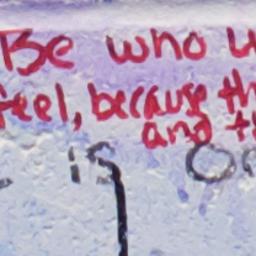 Be who u
feel, because th
and th
is